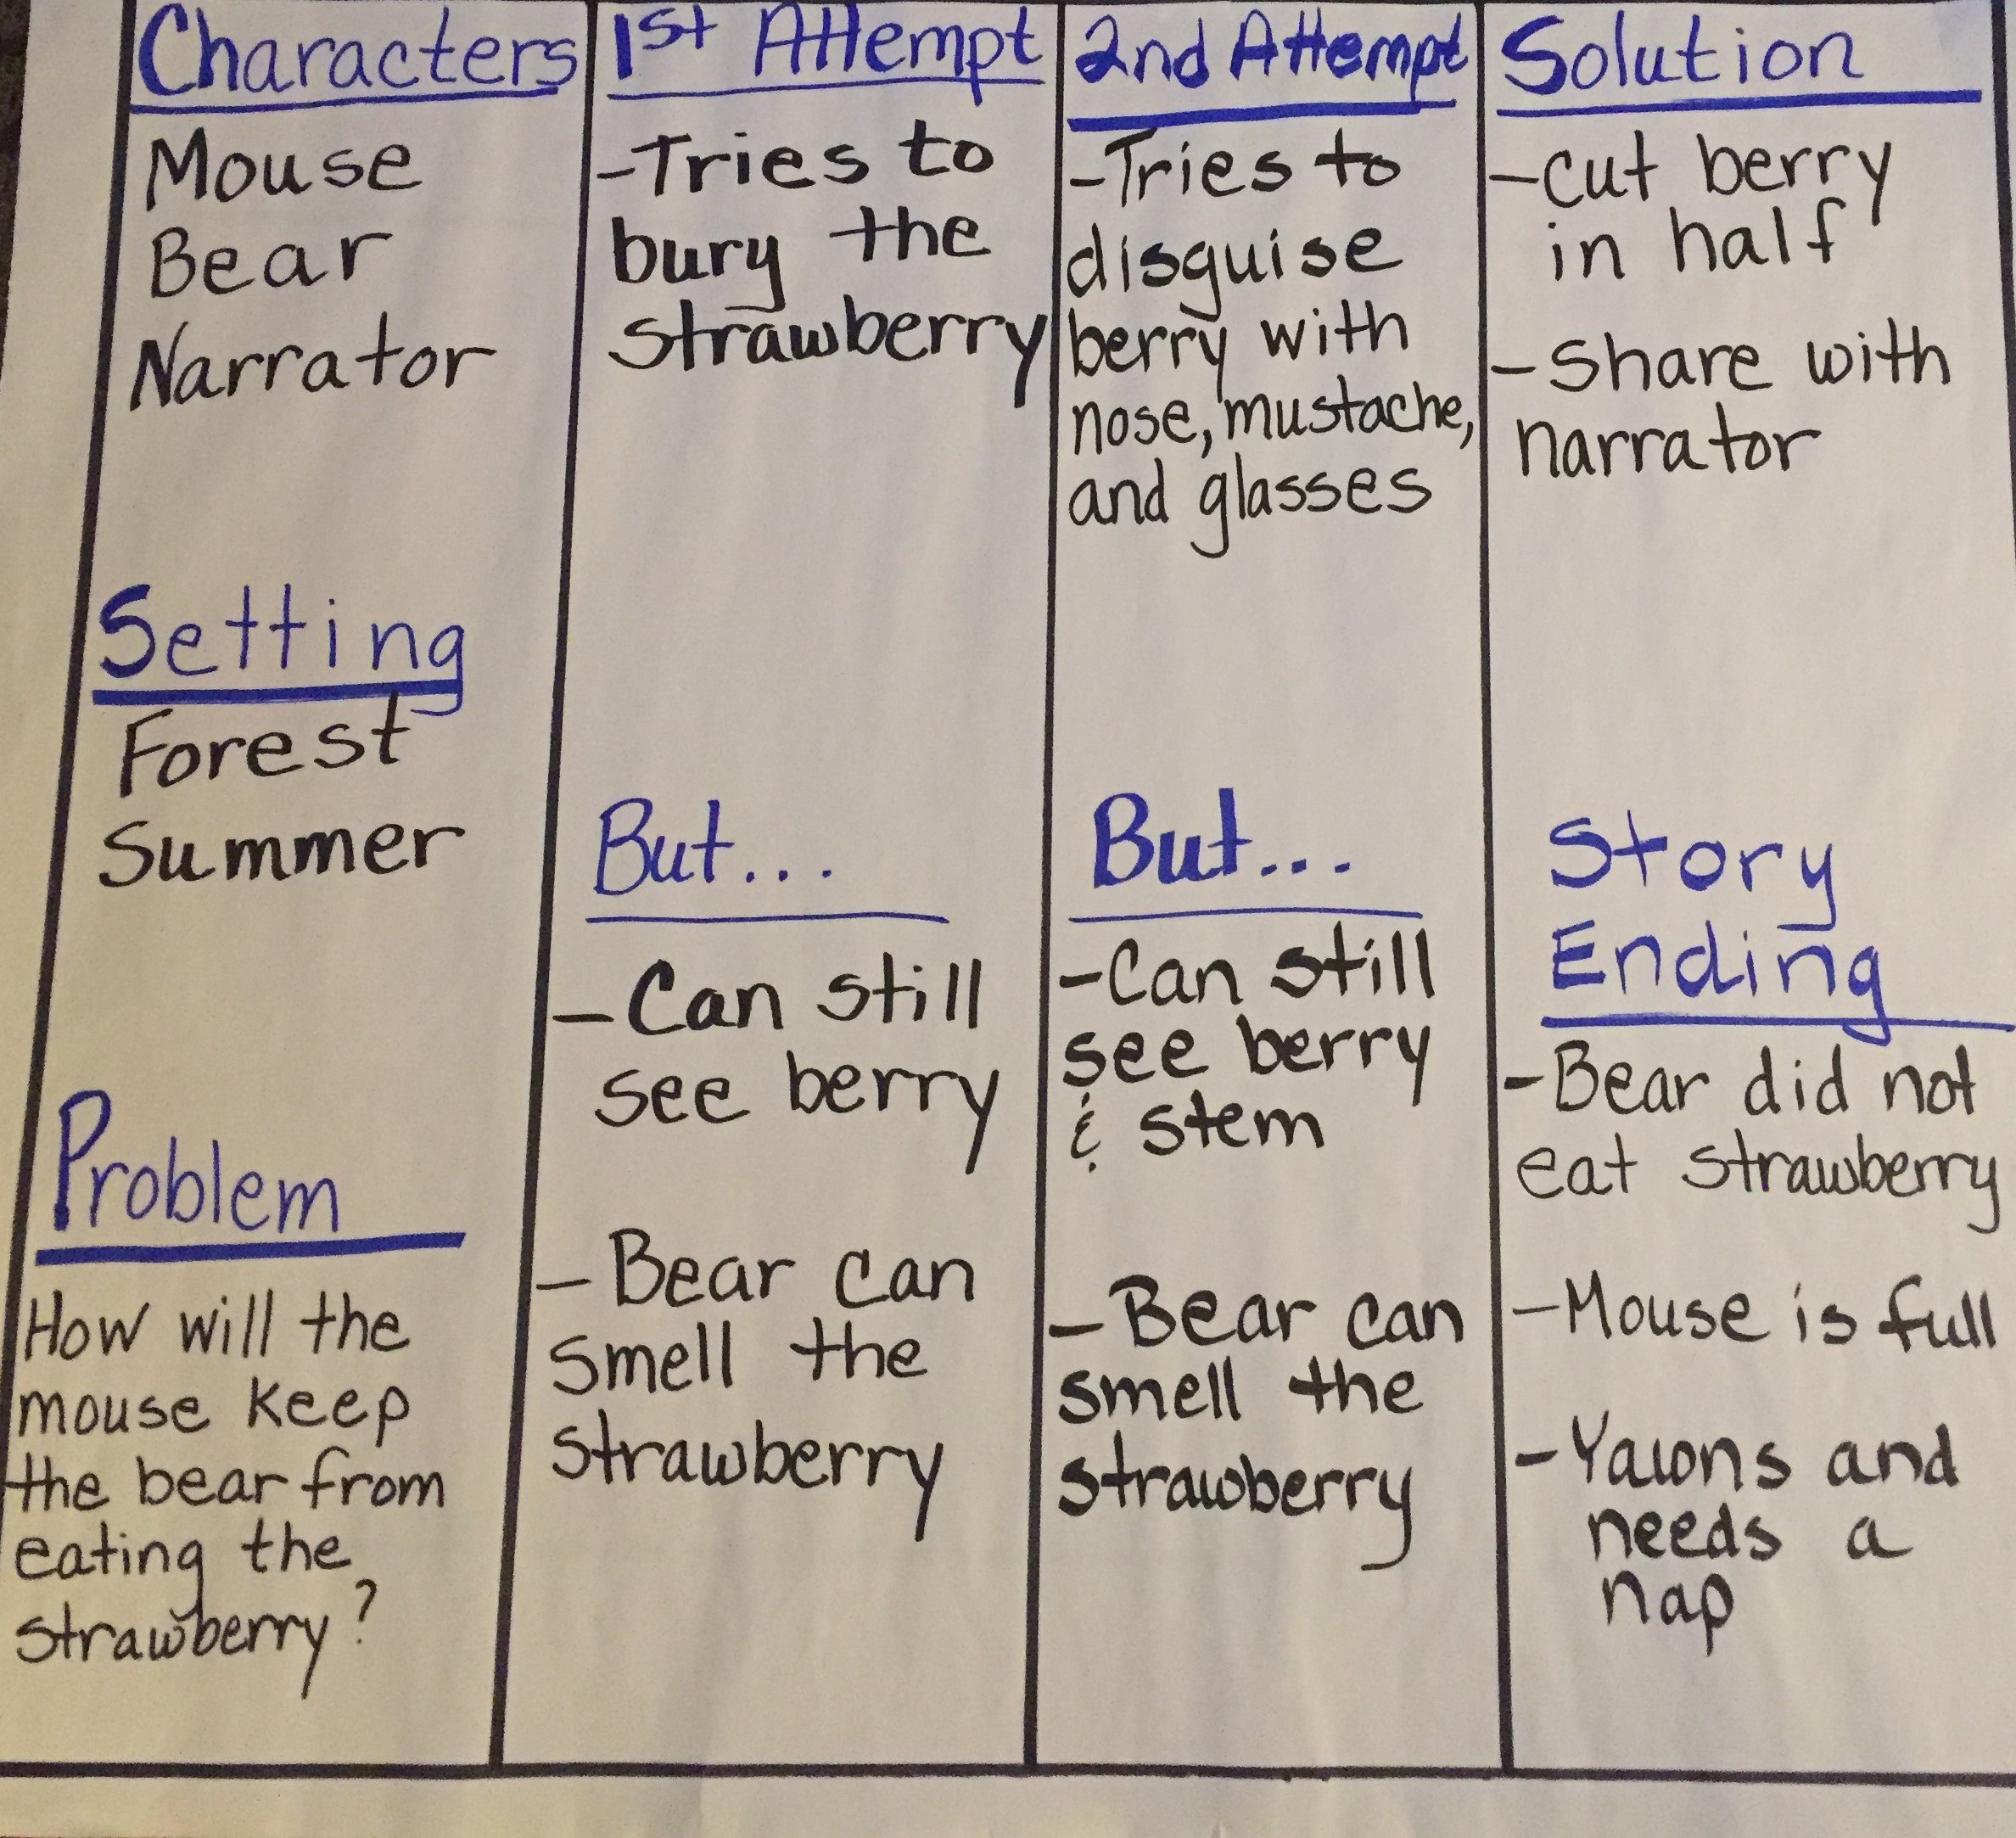 Characters
Mouse
Bear
Narrator
Setting
Forest
Summer
Problem
How will the
mouse keep
the bear from
eating the
strawberry?
1st Attempt
-Tries to
bury the
strawberry
But...
-Can still
see berry
-Bear can
smell the
strawberry
2nd Attempt
-Tries to
disguise
berry with
nose, mustache,
and glasses
But...
-Can still
see berry
& stem
-Bear can
smell the
strawberry
Solution
-cut berry
in half
-share with
narrator
Story
Ending
-Bear did not
eat strawberry
-Mouse is full
-Yawns and
needs a
nap